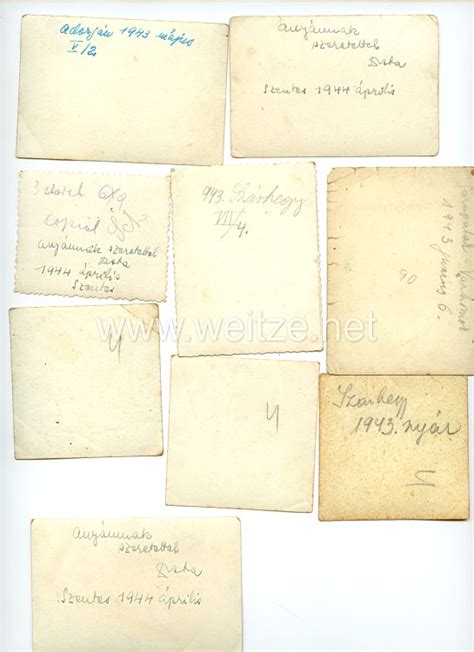 Adorján 1943 május
V/2.
Anyámnak
szeretettel
Szentes 1944 április
3 darab 6x9
Anyámnak szeretettel
1944 április
Szentes
943. Szárhegy
VIV/4.
1943 június 6.
90
www.weitze.net
4
4
Szárhegy
1943. nyár
4
Anyámnak
szeretettel
Szentes 1944 április